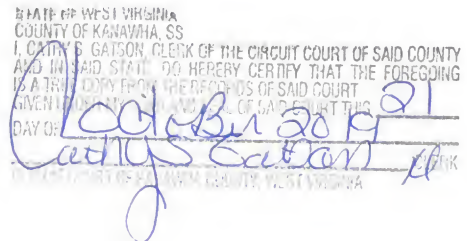 STATE OF WEST VIRGINIA
COUNTY OF KANAWHA, SS
I, CATHY S. GATSON, CLERK OF THE CIRCUIT COURT OF SAID COUNTY
AND IN SAID STATE, DO HEREBY CERTIFY THAT THE FOREGOING
IS A TRUE COPY FROM THE RECORDS OF SAID COURT
GIVEN UNDER MY HAND AND SEAL OF SAID COURT THIS 21
DAY OF October 2019
Cathy S Gatson CLERK
CIRCUIT COURT OF KANAWHA COUNTY, WEST VIRGINIA